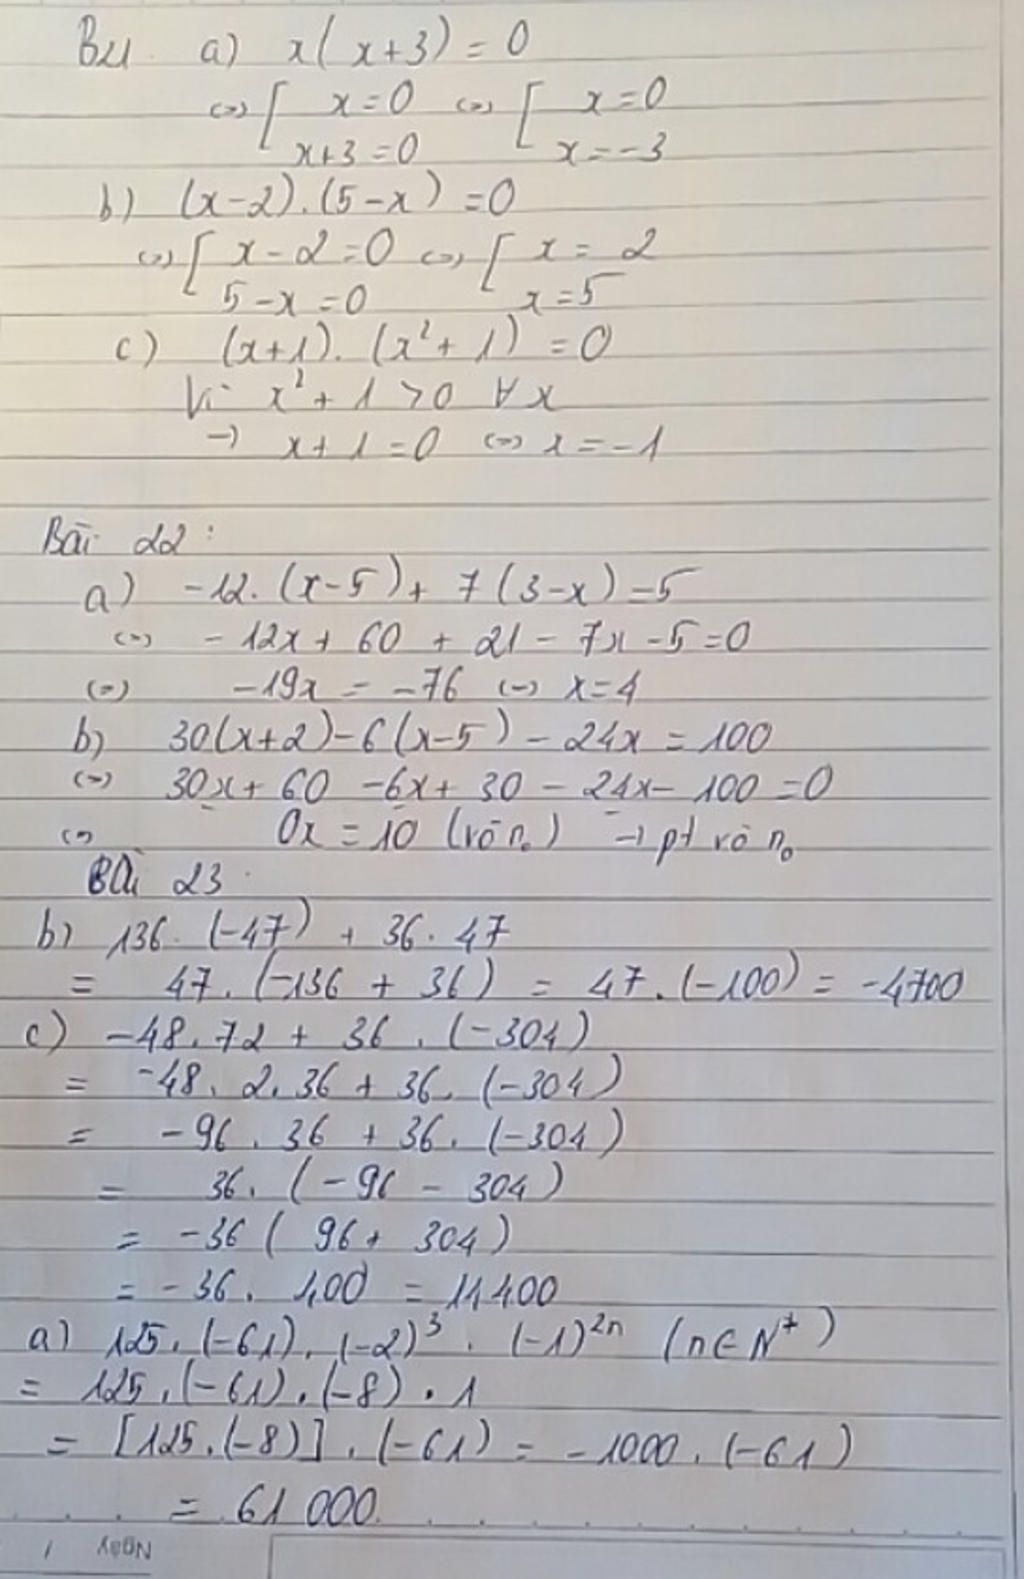 B21 a) x(x+3) = 0
<=> [ x=0 <=> [ x=0
x+3=0 x=-3
b) (x-2).(5-x) =0
<=> [ x-2=0 <=> [ x= 2
5-x=0 x=5
c) (x+1). (x²+1) =0
Vì x²+1 >0 ∀x
→ x+1=0 <=> x=-1
Bài 22:
a) -12.(x-5)+ 7(3-x)=5
<=> -12x+ 60 + 21- 7x -5=0
<=> -19x = -76 <=> x=4
b) 30(x+2)-6(x-5) - 24x = 100
<=> 30x+ 60 -6x+ 30 - 24x- 100 =0
<=> 0x = 10 (vô n₀) → pt vô n₀
Bài 23
b) 136. (-47) + 36.47
= 47. (-136 + 36) = 47.(-100) = -4700
c) -48.72 + 36 .(-304)
= -48. 2.36 + 36. (-304)
= -96 . 36 + 36. (-304)
= 36. (-96 - 304)
= -36 ( 96+ 304)
= -36. 400 = 14400
a) 125.(-61).(-2)³ . (-1)²ⁿ (n∈N*)
= 125.(-61).(-8).1
= [125.(-8)].(-61) = -1000.(-61)
= 61 000
Ngày